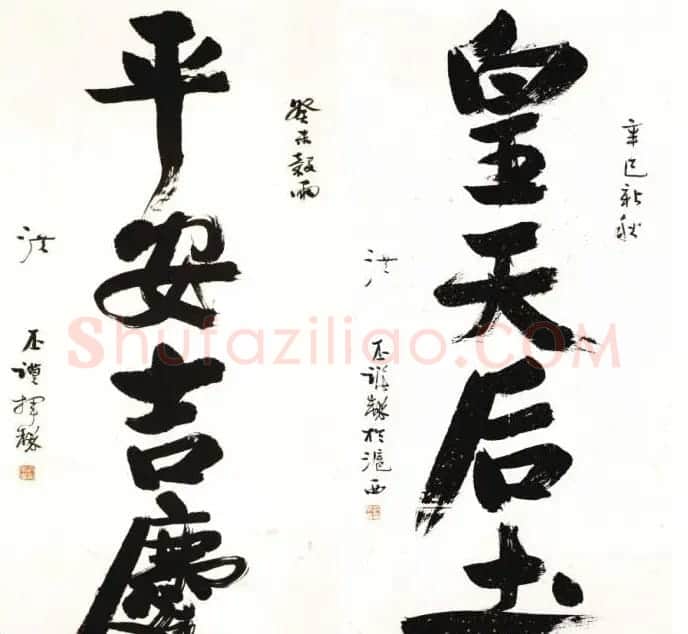 辛巳新秋
皇天后土
洪
丕謨於滬西
癸未穀雨
平安吉慶
洪
丕謨揮
Shufaziliao.COM